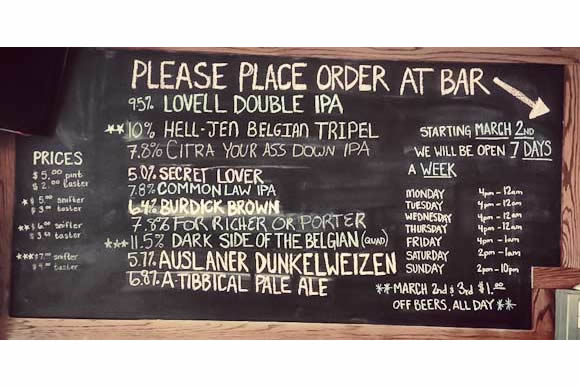 PLEASE PLACE ORDER AT BAR
9.5% LOVELL DOUBLE IPA
** 10% HELL-JEN BELGIAN TRIPEL
7.8% CITRA YOUR ASS DOWN IPA
5.0% SECRET LOVER
7.8% COMMON LAW IPA
6.4% BURDICK BROWN
7.8% FOR RICHER OR PORTER
*** 11.5% DARK SIDE OF THE BELGIAN (QUAD)
5.7% AUSLANER DUNKELWEIZEN
6.8% A-TIBBICAL PALE ALE
PRICES
$5.00 pint
$2.00 taster
* $5.00 snifter
$3.00 taster
** $6.00 snifter
$3.50 taster
*** $7.00 snifter
$4.00 taster
STARTING MARCH 2ND
WE WILL BE OPEN 7 DAYS
A WEEK
MONDAY 4pm - 12am
TUESDAY 4pm - 12am
WEDNESDAY 4pm - 12am
THURSDAY 4pm - 12am
FRIDAY 4pm - 1am
SATURDAY 2pm - 1am
SUNDAY 2pm - 10pm
** MARCH 2nd & 3rd $1.00
OFF BEERS, ALL DAY **